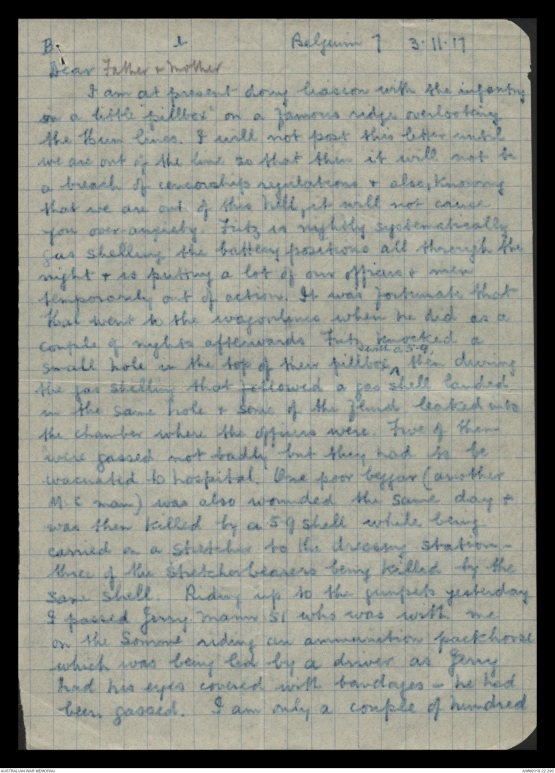 B. 1 Belgium 7 3.11.17
Dear Father & Mother
I am at present doing liaison with the infantry
in a little "pillbox" on a famous ridge overlooking
the Hun lines. I will not post this letter until
we are out of the line so that then it will not be
a breach of censorship regulations & also, knowing
that we are out of this hell, it will not cause
you over-anxiety. Fritz is nightly systematically
gas shelling the battery positions all through the
night & is putting a lot of our officers & men
temporarily out of action. It was fortunate that
went to the wagonlines when he did as a
couple of nights afterwards Fritz knocked a
with a 5.9.
small hole in the top of their pillbox, then during
the gas shelling that followed a gas shell landed
in the same hole & some of the fluid leaked into
the chamber where the officers were. Five of them
were gassed not badly but they had to be
evacuated to hospital. One poor beggar (another
M.C man) was also wounded the same day &
was then killed by a 5.9 shell while being
carried on a stretcher to the dressing station -
three of the stretcherbearers being killed by the
same shell. Riding up to the gunpits yesterday
I passed Gerry Mann who was with me
on the Somme riding an ammunition packhorse
which was being led by a driver as Gerry
had his eyes covered with bandages - he had
been gassed. I am only a couple of hundred
AUSTRALIAN WAR MEMORIAL